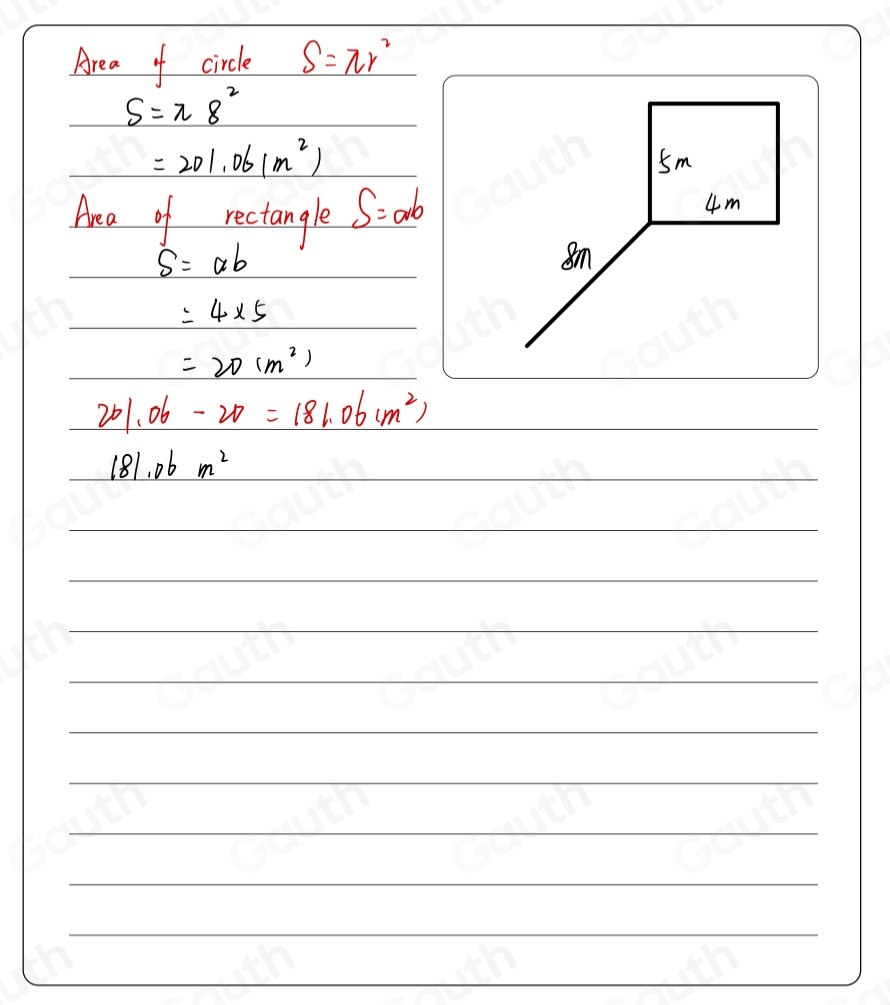 Area of circle S=πr²
S=π 8²
= 201.06(m²)
Area of rectangle S=ab
S= ab
= 4×5
= 20 (m²)
201.06 - 20 = 181.06(m²)
181.06 m²
5m
4m
8m
Gauth